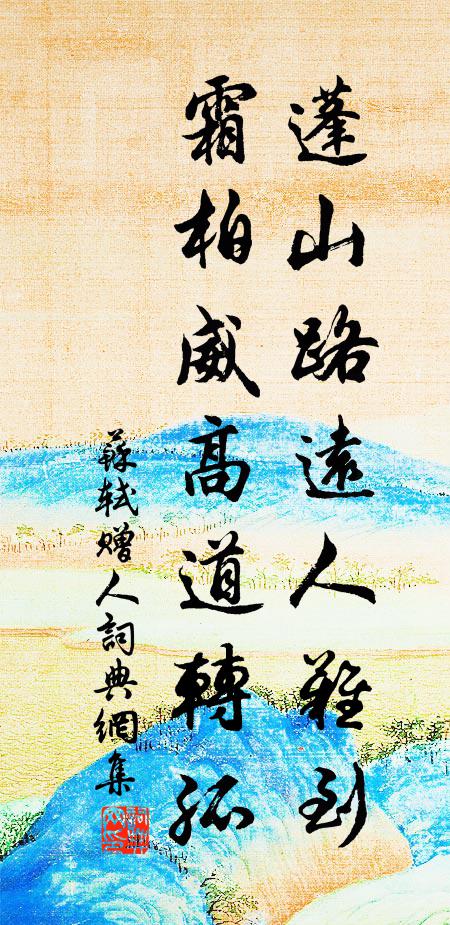 蓬山路遠人難到
霜柏威高道轉孤
蘇軾贈人詞典網集